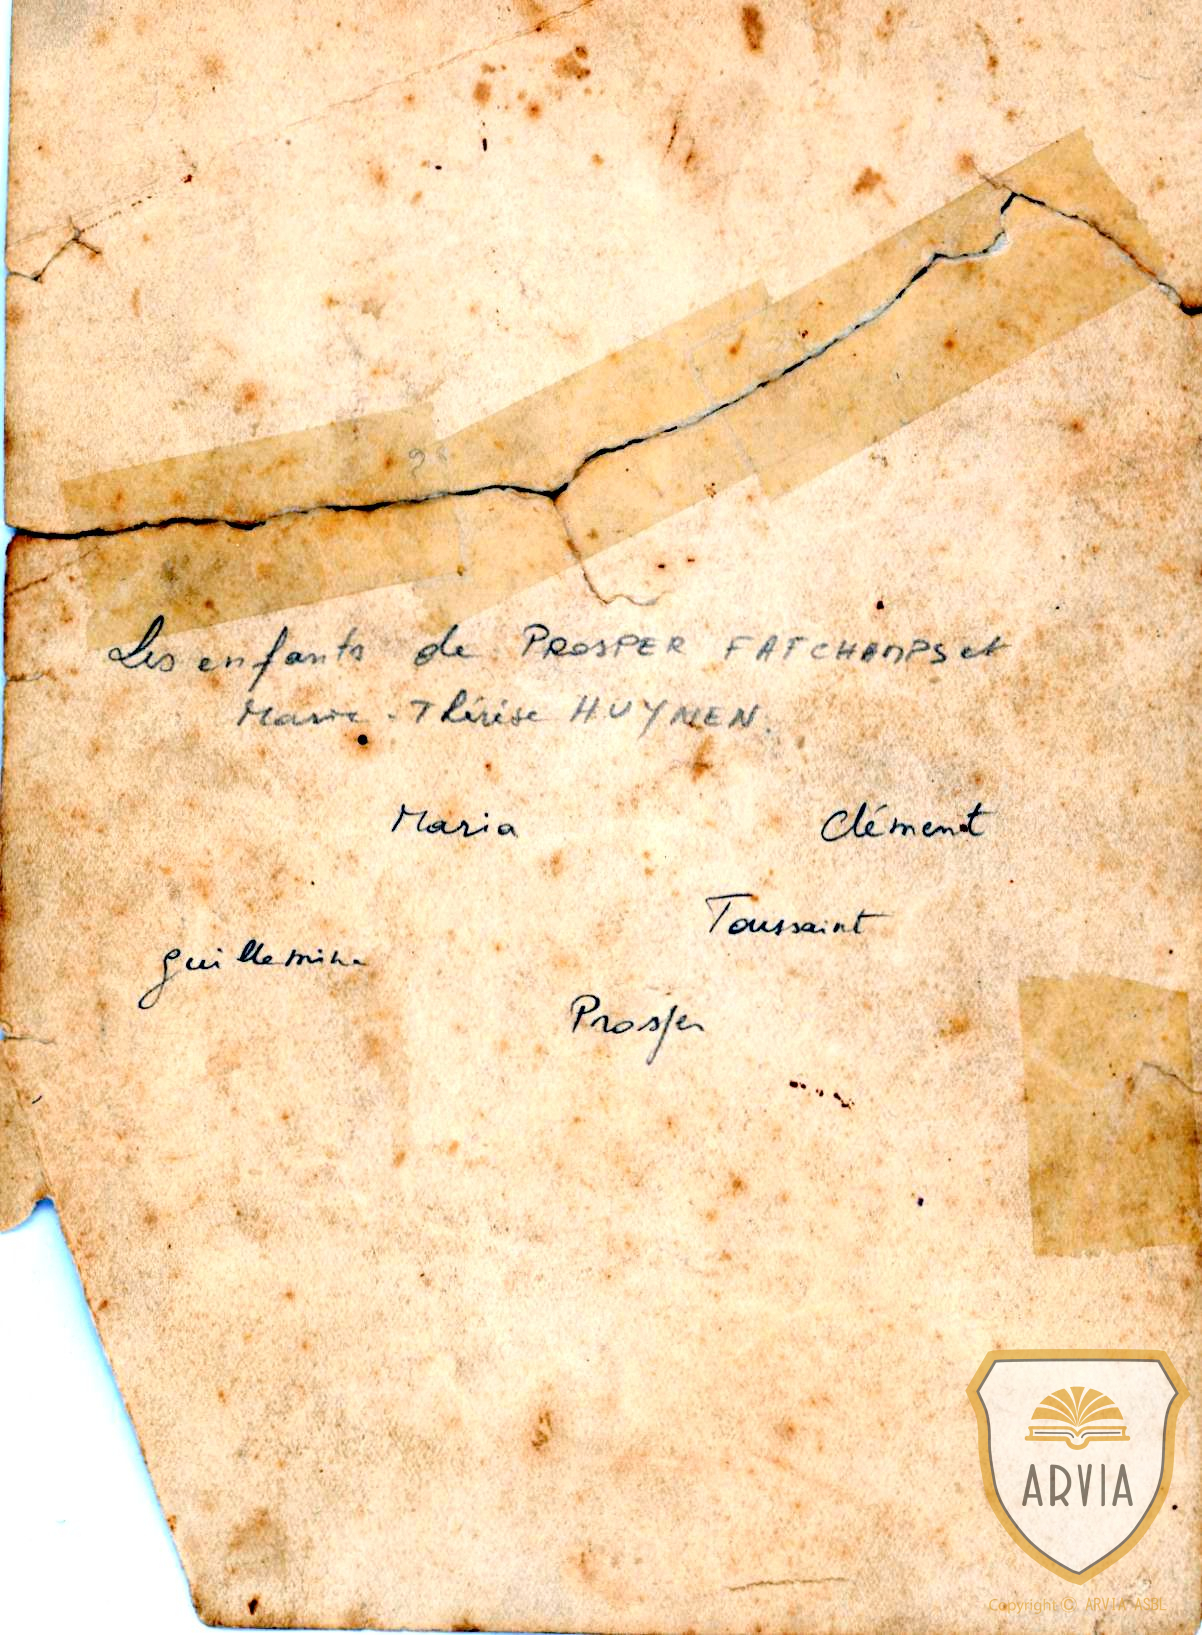 Les enfants de PROSPER FATCHAMPS et
Marie-Thérèse HUYNEN.
Maria
Clément
Toussaint
Guillemine
Prosper
ARVIA
Copyright © ARVIA ASBL